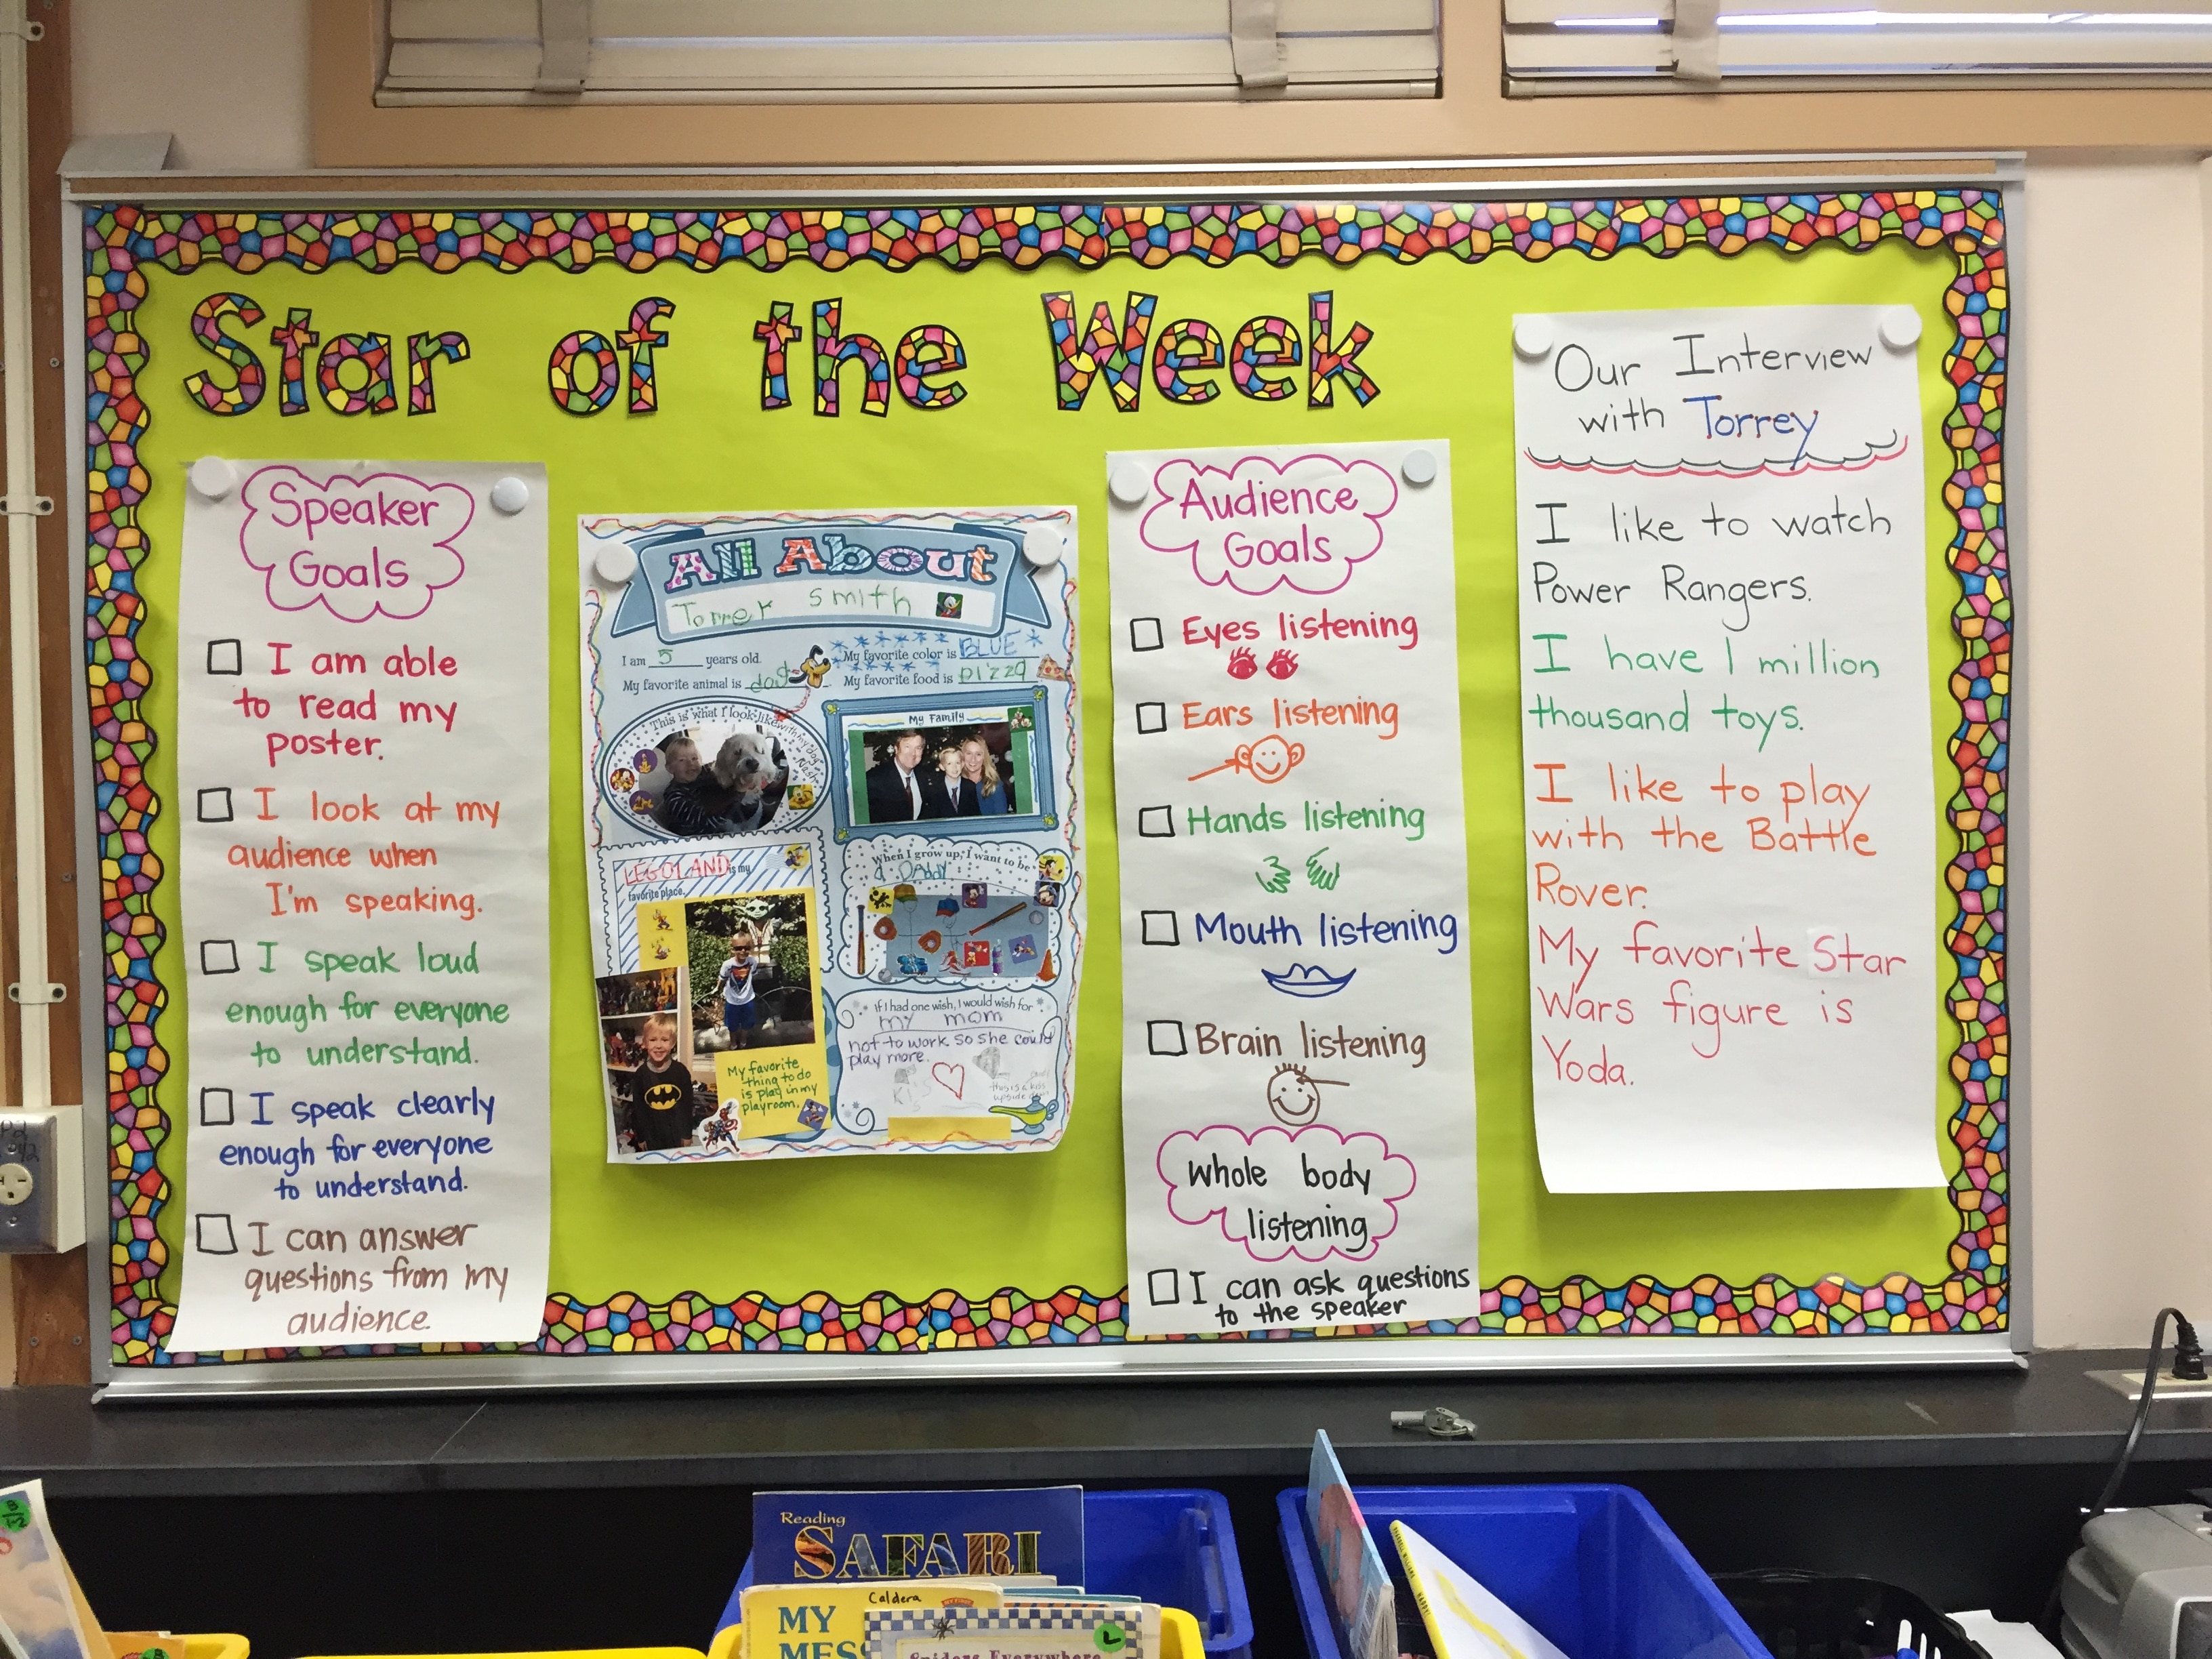 Star of the Week
Speaker
Goals
I am able
to read my
poster.
I look at my
audience when
I'm speaking.
I speak loud
enough for everyone
to understand.
I speak clearly
enough for everyone
to understand.
I can answer
questions from my
audience.
All About
Torrey Smith
I am 5 years old.
My favorite color is BLUE
My favorite animal is dog
My favorite food is pizza
This is what I look like with my dog Nash
My Family
LEGOLAND is my
favorite place.
My favorite
thing to do
is play in my
playroom.
When I grow up, I want to be
a Daddy
If I had one wish, I would wish for
my mom
not to work so she could
play more.
this is a kiss
upside down
Audience
Goals
Eyes listening
Ears listening
Hands listening
Mouth listening
Brain listening
whole body
listening
I can ask questions
to the speaker
Our Interview
with Torrey
I like to watch
Power Rangers.
I have 1 million
thousand toys.
I like to play
with the Battle
Rover.
My favorite Star
Wars figure is
Yoda.
Reading
SAFARI
Caldera
MY
MES
Spiders Everywhere
L